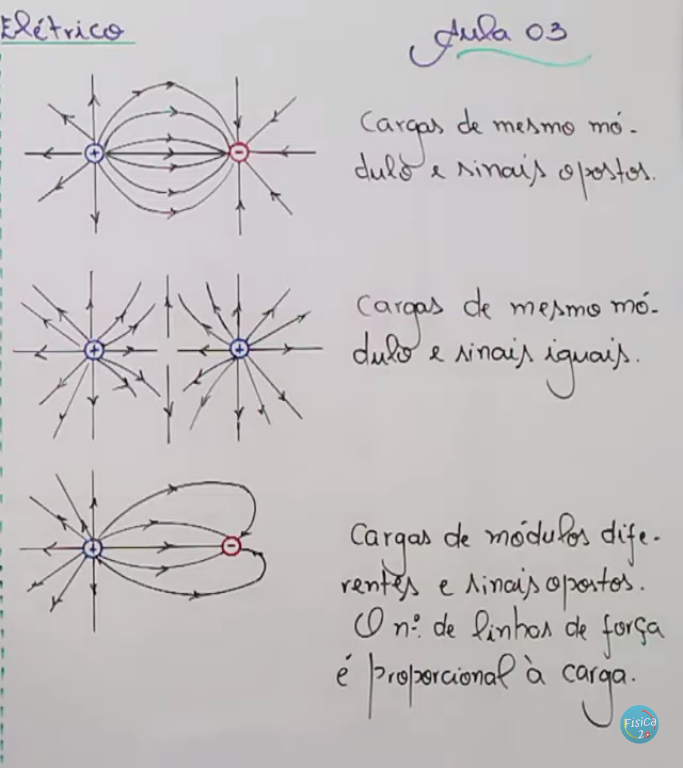 Elétrico
Aula 03
Cargas de mesmo mó-
dulo e sinais opostos.
+
-
Cargas de mesmo mó-
dulo e sinais iguais.
+
+
Cargas de módulos dife-
rentes e sinais opostos.
O nº de linhas de força
é proporcional à carga.
+
-
FISICA
2.0